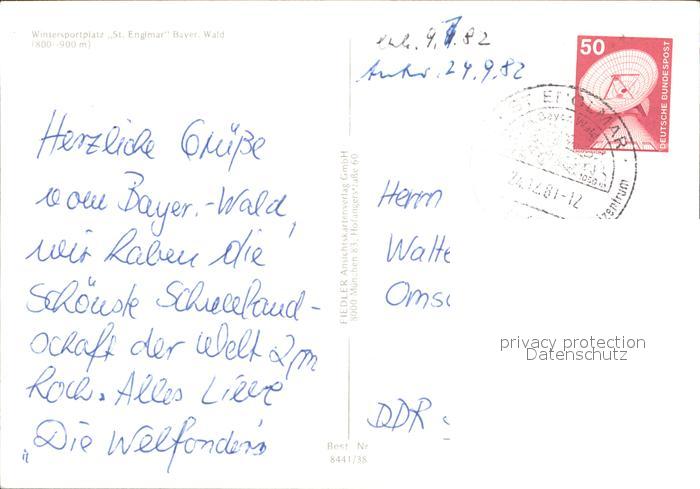 Wintersportplatz „St. Englmar" Bayer. Wald
(800-900 m)
Herzliche Grüße
vom Bayer.-Wald,
wir haben die
Schönste Schneeland-
schaft der Welt 2m
hoch. Alles Liebe
„Die Welfonder's
FIEDLER Ansichtskartenverlag GmbH
8000 München 83, Hofangerstraße 60
Best. Nr
8441/38
erh. 9.1.82
Antw. 24.9.82
50
DEUTSCHE BUNDESPOST
ST ENGLMAR
Bayer. Wald
24.12.81-12
zentrum
Herrn
Walte
Omsc
DDR
privacy protection
Datenschutz